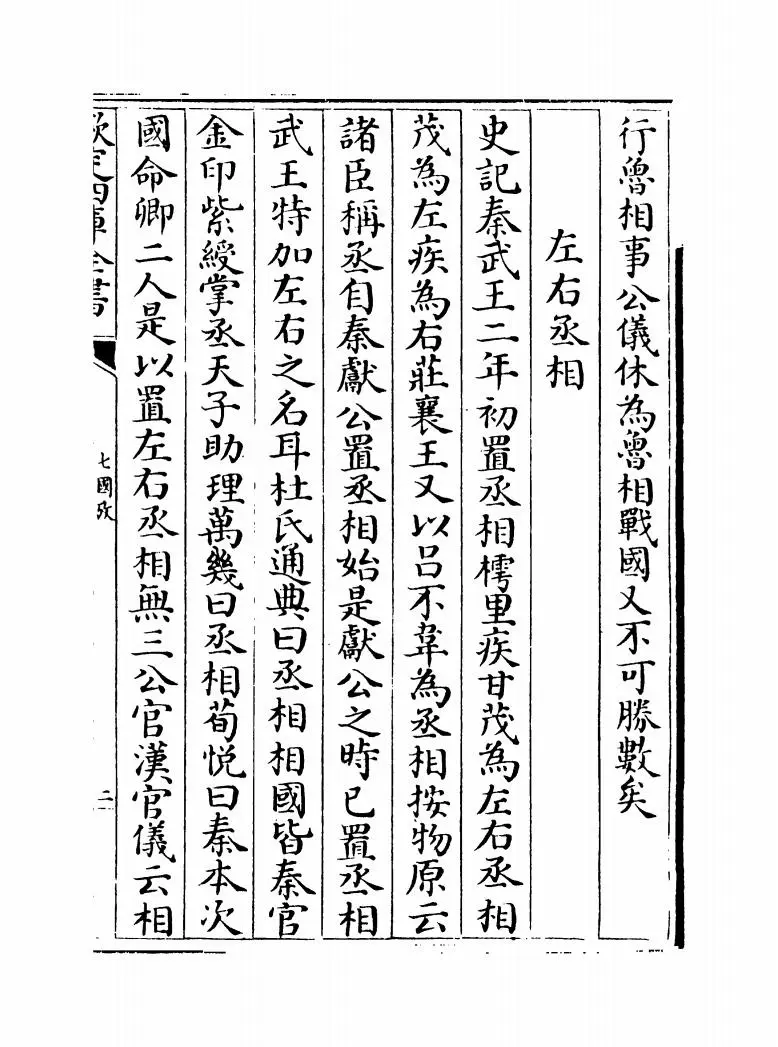 行魯相事公儀休為魯相戰國又不可勝數矣
左右丞相
史記秦武王二年初置丞相樗里疾甘茂為左右丞相
茂為左疾為右莊襄王又以呂不韋為丞相按物原云
諸臣稱丞自秦獻公置丞相始是獻公之時已置丞相
武王特加左右之名耳杜氏通典曰丞相相國皆秦官
金印紫綬掌丞天子助理萬幾曰丞相荀悅曰秦本次
國命卿二人是以置左右丞相無三公官漢官儀云相
欽定四庫全書
七國攷
二